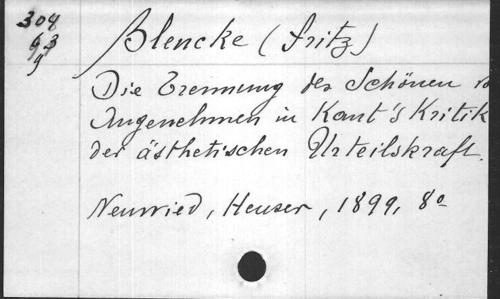 304
63
9
Blencke (Fritz)
Die Trennung des Schönen v
Angenehmen in Kant's Kritik
der ästhetischen Urteilskraft.
Neuwied, Heuser, 1899, 8o